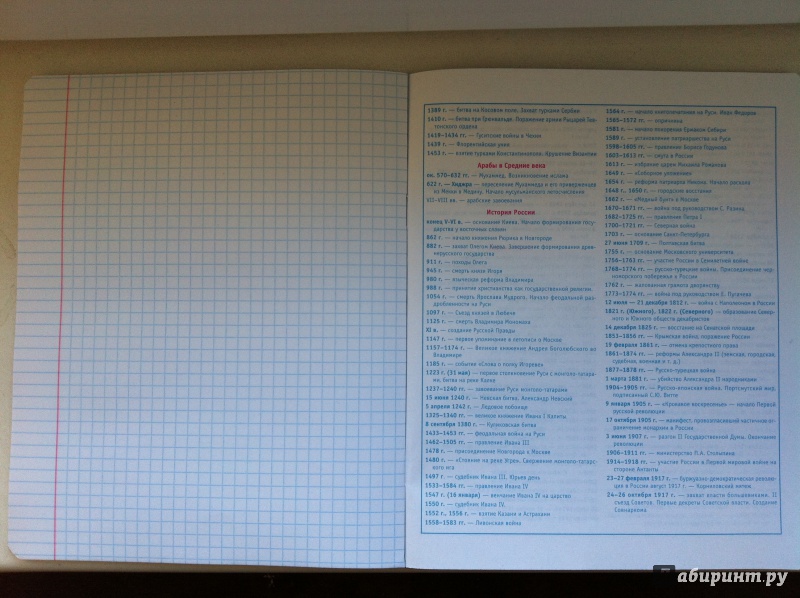 1389 г. — битва на Косовом поле. Захват турками Сербии
1410 г. — битва при Грюнвальде. Поражение армии Рыцарей Тев-
тонского ордена
1419–1434 гг. — Гуситские войны в Чехии
1439 г. — Флорентийская уния
1453 г. — взятие турками Константинополя. Крушение Византии
Арабы в Средние века
ок. 570–632 гг. — Мухаммед. Возникновение ислама
622 г. — Хиджра — переселение Мухаммеда и его приверженцев
из Мекки в Медину. Начало мусульманского летосчисления
VII–VIII вв. — арабские завоевания
История России
конец V–VI в. — основание Киева. Начало формирования госу-
дарства у восточных славян
862 г. — начало княжения Рюрика в Новгороде
882 г. — захват Олегом Киева. Завершение формирования древ-
нерусского государства
911 г. — походы Олега
945 г. — смерть князя Игоря
980 г. — языческая реформа Владимира
988 г. — принятие христианства как государственной религии.
1054 г. — смерть Ярослава Мудрого. Начало феодальной раз-
дробленности на Руси
1097 г. — Съезд князей в Любече
1125 г. — смерть Владимира Мономаха
XI в. — создание Русской Правды
1147 г. — первое упоминание в летописи о Москве
1157–1174 г. — Великое княжение Андрея Боголюбского во
Владимире
1185 г. — событие «Слова о полку Игореве»
1223 г. (31 мая) — первое столкновение Руси с монголо-татара-
ми, битва на реке Калке
1237–1240 гг. — завоевание Руси монголо-татарами
15 июля 1240 г. — Невская битва. Александр Невский
5 апреля 1242 г. — Ледовое побоище
1325–1340 гг. — великое княжение Ивана I Калиты
8 сентября 1380 г. — Куликовская битва
1433–1453 гг. — феодальная война на Руси
1462–1505 гг. — правление Ивана III
1478 г. — присоединение Новгорода к Москве
1480 г. — «Стояние на реке Угре». Свержение монголо-татарс-
кого ига
1497 г. — судебник Ивана III. Юрьев день
1533–1584 гг. — правление Ивана IV
1547 г. (16 января) — венчание Ивана IV на царство
1550 г. — судебник Ивана IV.
1552 г., 1556 г. — взятие Казани и Астрахани
1558–1583 гг. — Ливонская война
1564 г. — начало книгопечатания на Руси. Иван Федоров
1565–1572 гг. — опричнина
1581 г. — начало покорения Ермаком Сибири
1589 г. — установление патриаршества на Руси
1598–1605 гг. — правление Бориса Годунова
1605–1613 гг. — смута в России
1613 г. — избрание царем Михаила Романова
1649 г. — «Соборное уложение»
1654 г. — реформа патриарха Никона. Начало раскола
1648 г., 1650 г. — городские восстания
1662 г. — «Медный бунт» в Москве
1670–1671 гг. — война под руководством С. Разина.
1682–1725 гг. — правление Петра I
1700–1721 гг. — Северная война
1703 г. — основание Санкт-Петербурга
27 июня 1709 г. — Полтавская битва
1755 г. — основание Московского университета
1756–1763 гг. — участие России в Семилетней войне
1768–1774 гг. — русско-турецкие войны. Присоединение чер-
номорского побережья к России
1762 г. — жалованная грамота дворянству.
1773–1774 гг. — война под руководством Е. Пугачева
12 июля — 21 декабря 1812 г. — война с Наполеоном в России
1821 г. (Южного), 1822 г. (Северного) — образование Север-
ного и Южного обществ декабристов
14 декабря 1825 г. — восстание на Сенатской площади
1853–1856 гг. — Крымская война, поражение России
19 февраля 1861 г. — отмена крепостного права
1861–1874 гг. — реформы Александра II (земская, городская,
судебная, военная и т. д.)
1877–1878 гг. — Русско-турецкая война
1 марта 1881 г. — убийство Александра II народовольцами
1904–1905 гг. — Русско-японская война. Портсмутский мир,
подписанный С.Ю. Витте
9 января 1905 г. — «Кровавое воскресенье» — начало Первой
русской революции
17 октября 1905 г. — манифест, провозгласивший частичное ог-
раничение монархии в России
3 июня 1907 г. — разгон II Государственной Думы. Окончание
революции
1906–1911 гг. — министерство П.А. Столыпина
1914–1918 гг. — участие России в Первой мировой войне на
стороне Антанты
23–27 февраля 1917 г. — Буржуазно-демократическая револю-
ция в России август 1917 г. — Корниловский мятеж
24–26 октября 1917 г. — захват власти большевиками. II
съезд Советов. Первые декреты Советской власти. Создание
Совнаркома
абиринт.ру